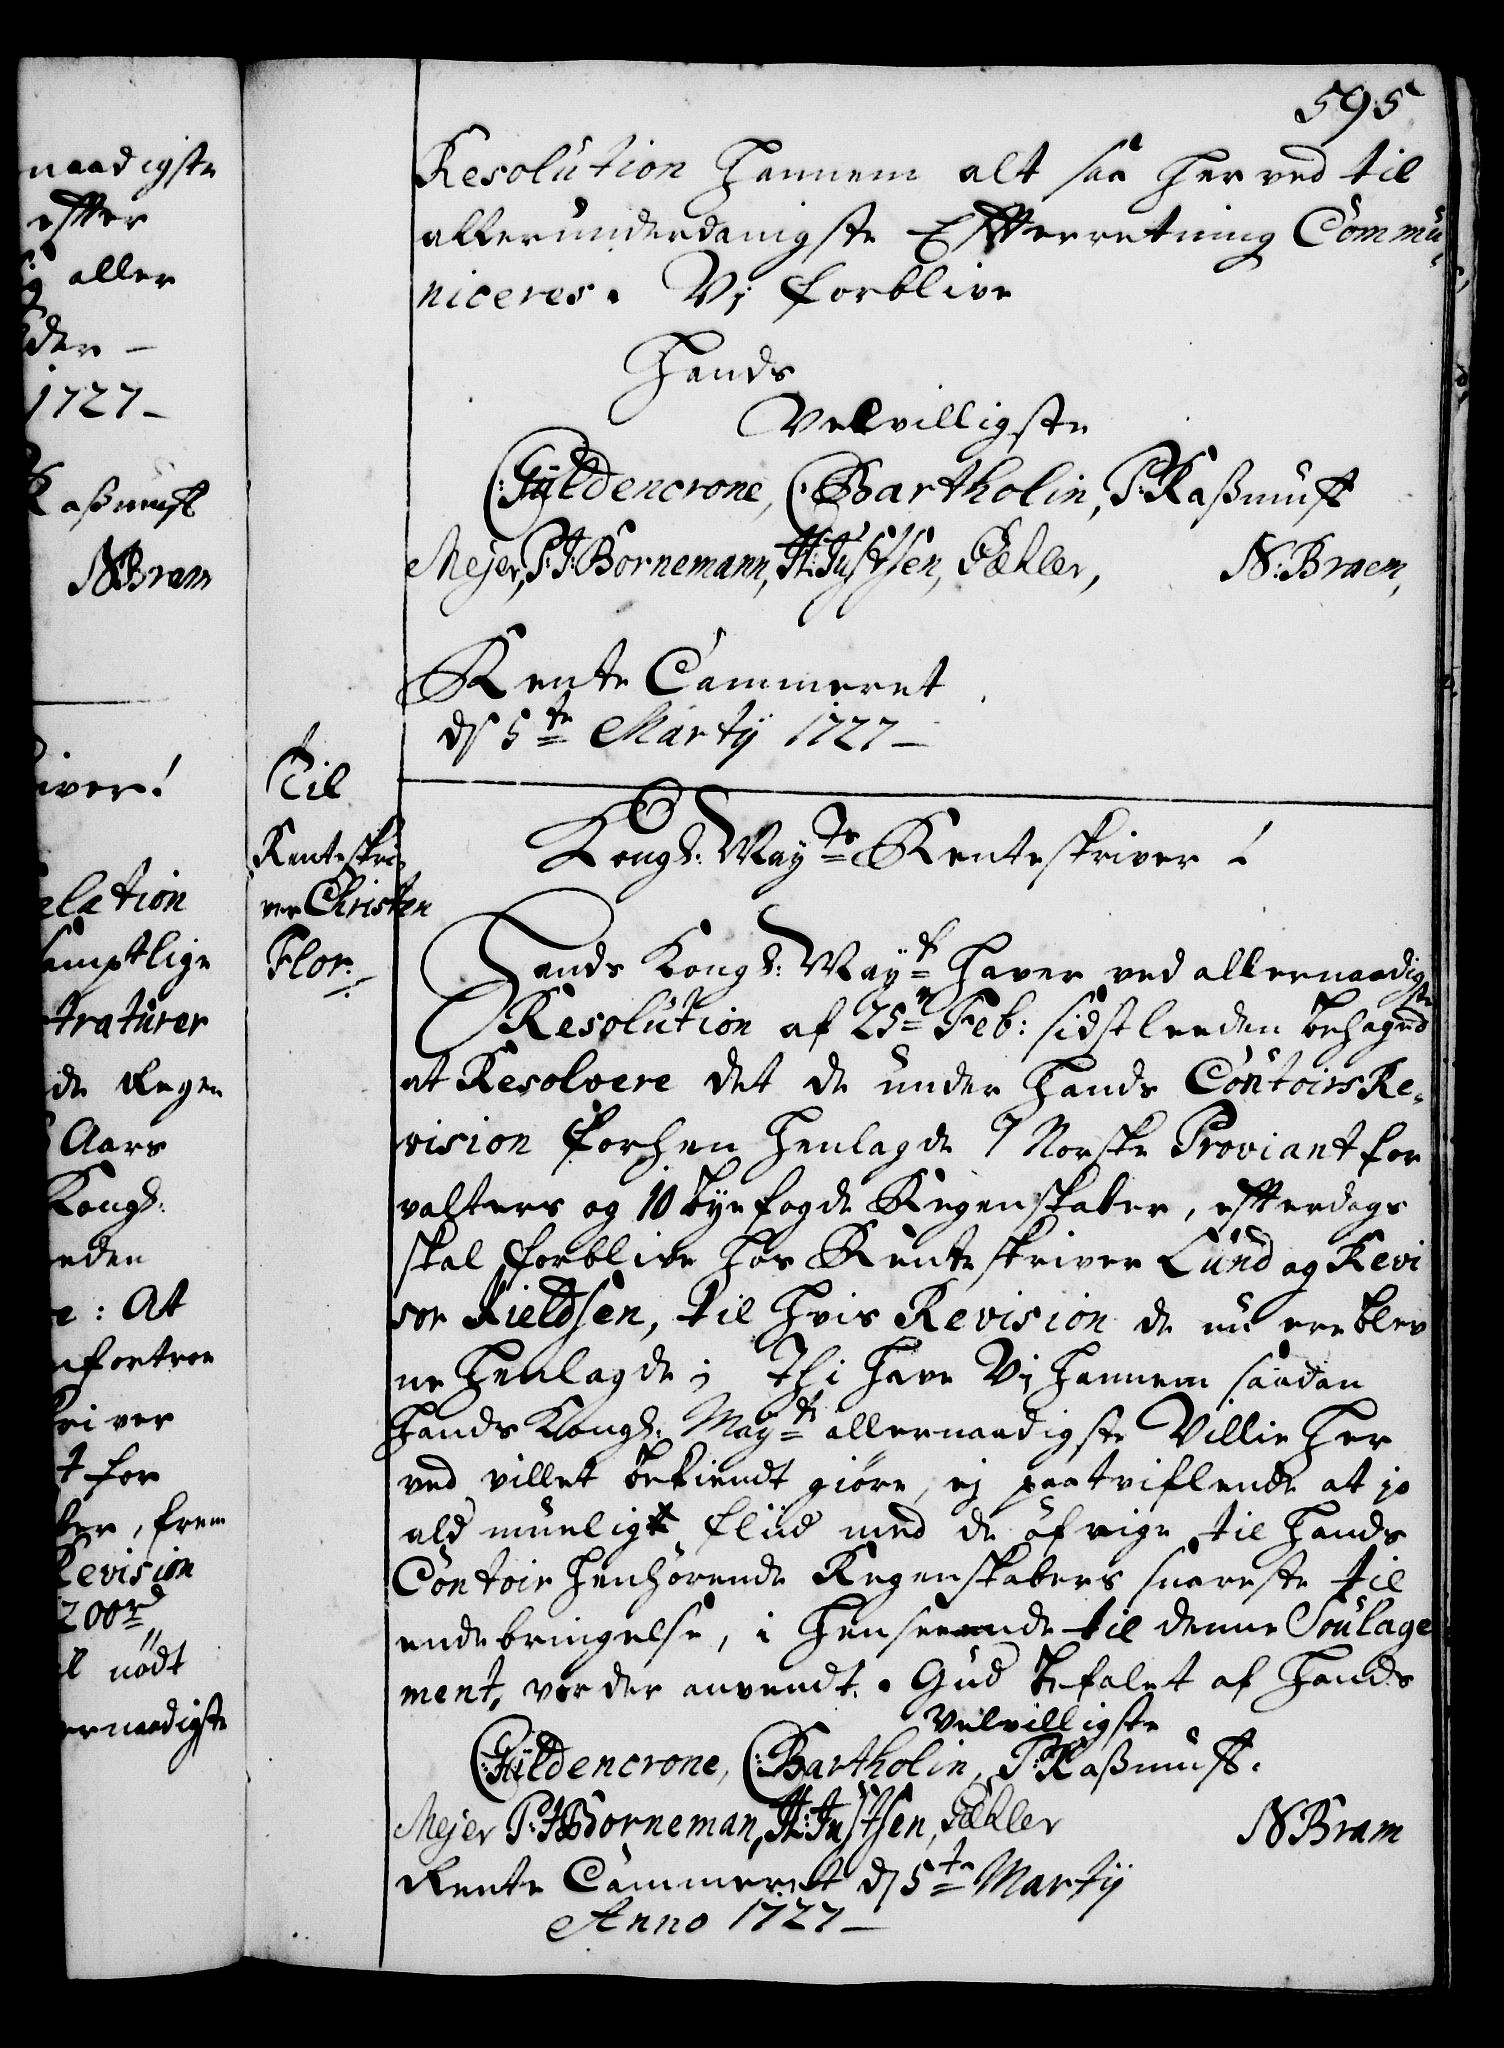 595
Resolution hannem alt saa her ved til
allerunderdanigste Effterretning Commu„
niceres. Vj forblive
Hands
Velvilligste
C: Gÿldencrone, C: Bartholin, P: Raßmuss
Mejer, P: J: Bornemann, H: Justsen, Pæhler, N: Braem,
Rente Cammeret
d 5te Martÿ 1727 –
Til
Renteskri„
ver Christen
Flor.
Kongs: Mayts Renteskriver!
Hands Kongs: Mayt haver ved allernaadigste
Resolution af 25n Feb: sidstleeden behaged
at Resolvere det de under hands Contoirs Re„
vision forhen henlagde 7 Norske Proviantfor
valters og 10 Bÿefogde Regenskaber, effterdags
skal forblive hos Renteskriver Lund og Revi
sor Kieldsen, til hvis Revision de nu ere blev
ne henlagde; Thi have Vj hannem saadan
Hands Kongs: Mayts allernaadigste Villie her
ved villet bekiendt giöre, ej paatviflende at jo
ald mueligt fliid med de öfrige til hands
Contoir henhörende Regenskabers snareste til
endebringelse, i henseende til denne Soulage
ment, vorder anvendt. Gud befalet af Hands
Velvilligste
C: Gÿldencrone, C: Bartholin, P: Raßmuss.
Mejer P: J Borneman, H: Justsen, Pæhler N Bram
Rente Cammeret d 5te Martÿ
Anno 1727 –
naadigste
effter
aller
der –
1727 –
Raßmuss
N Bram
iver!
lation
samptlige
traturer
de Regen
Aars
Kongs:
eden
e: At
nfortroe
kriver
t for
ber, frem
Revision
200rd
l nödt
ernaadigste